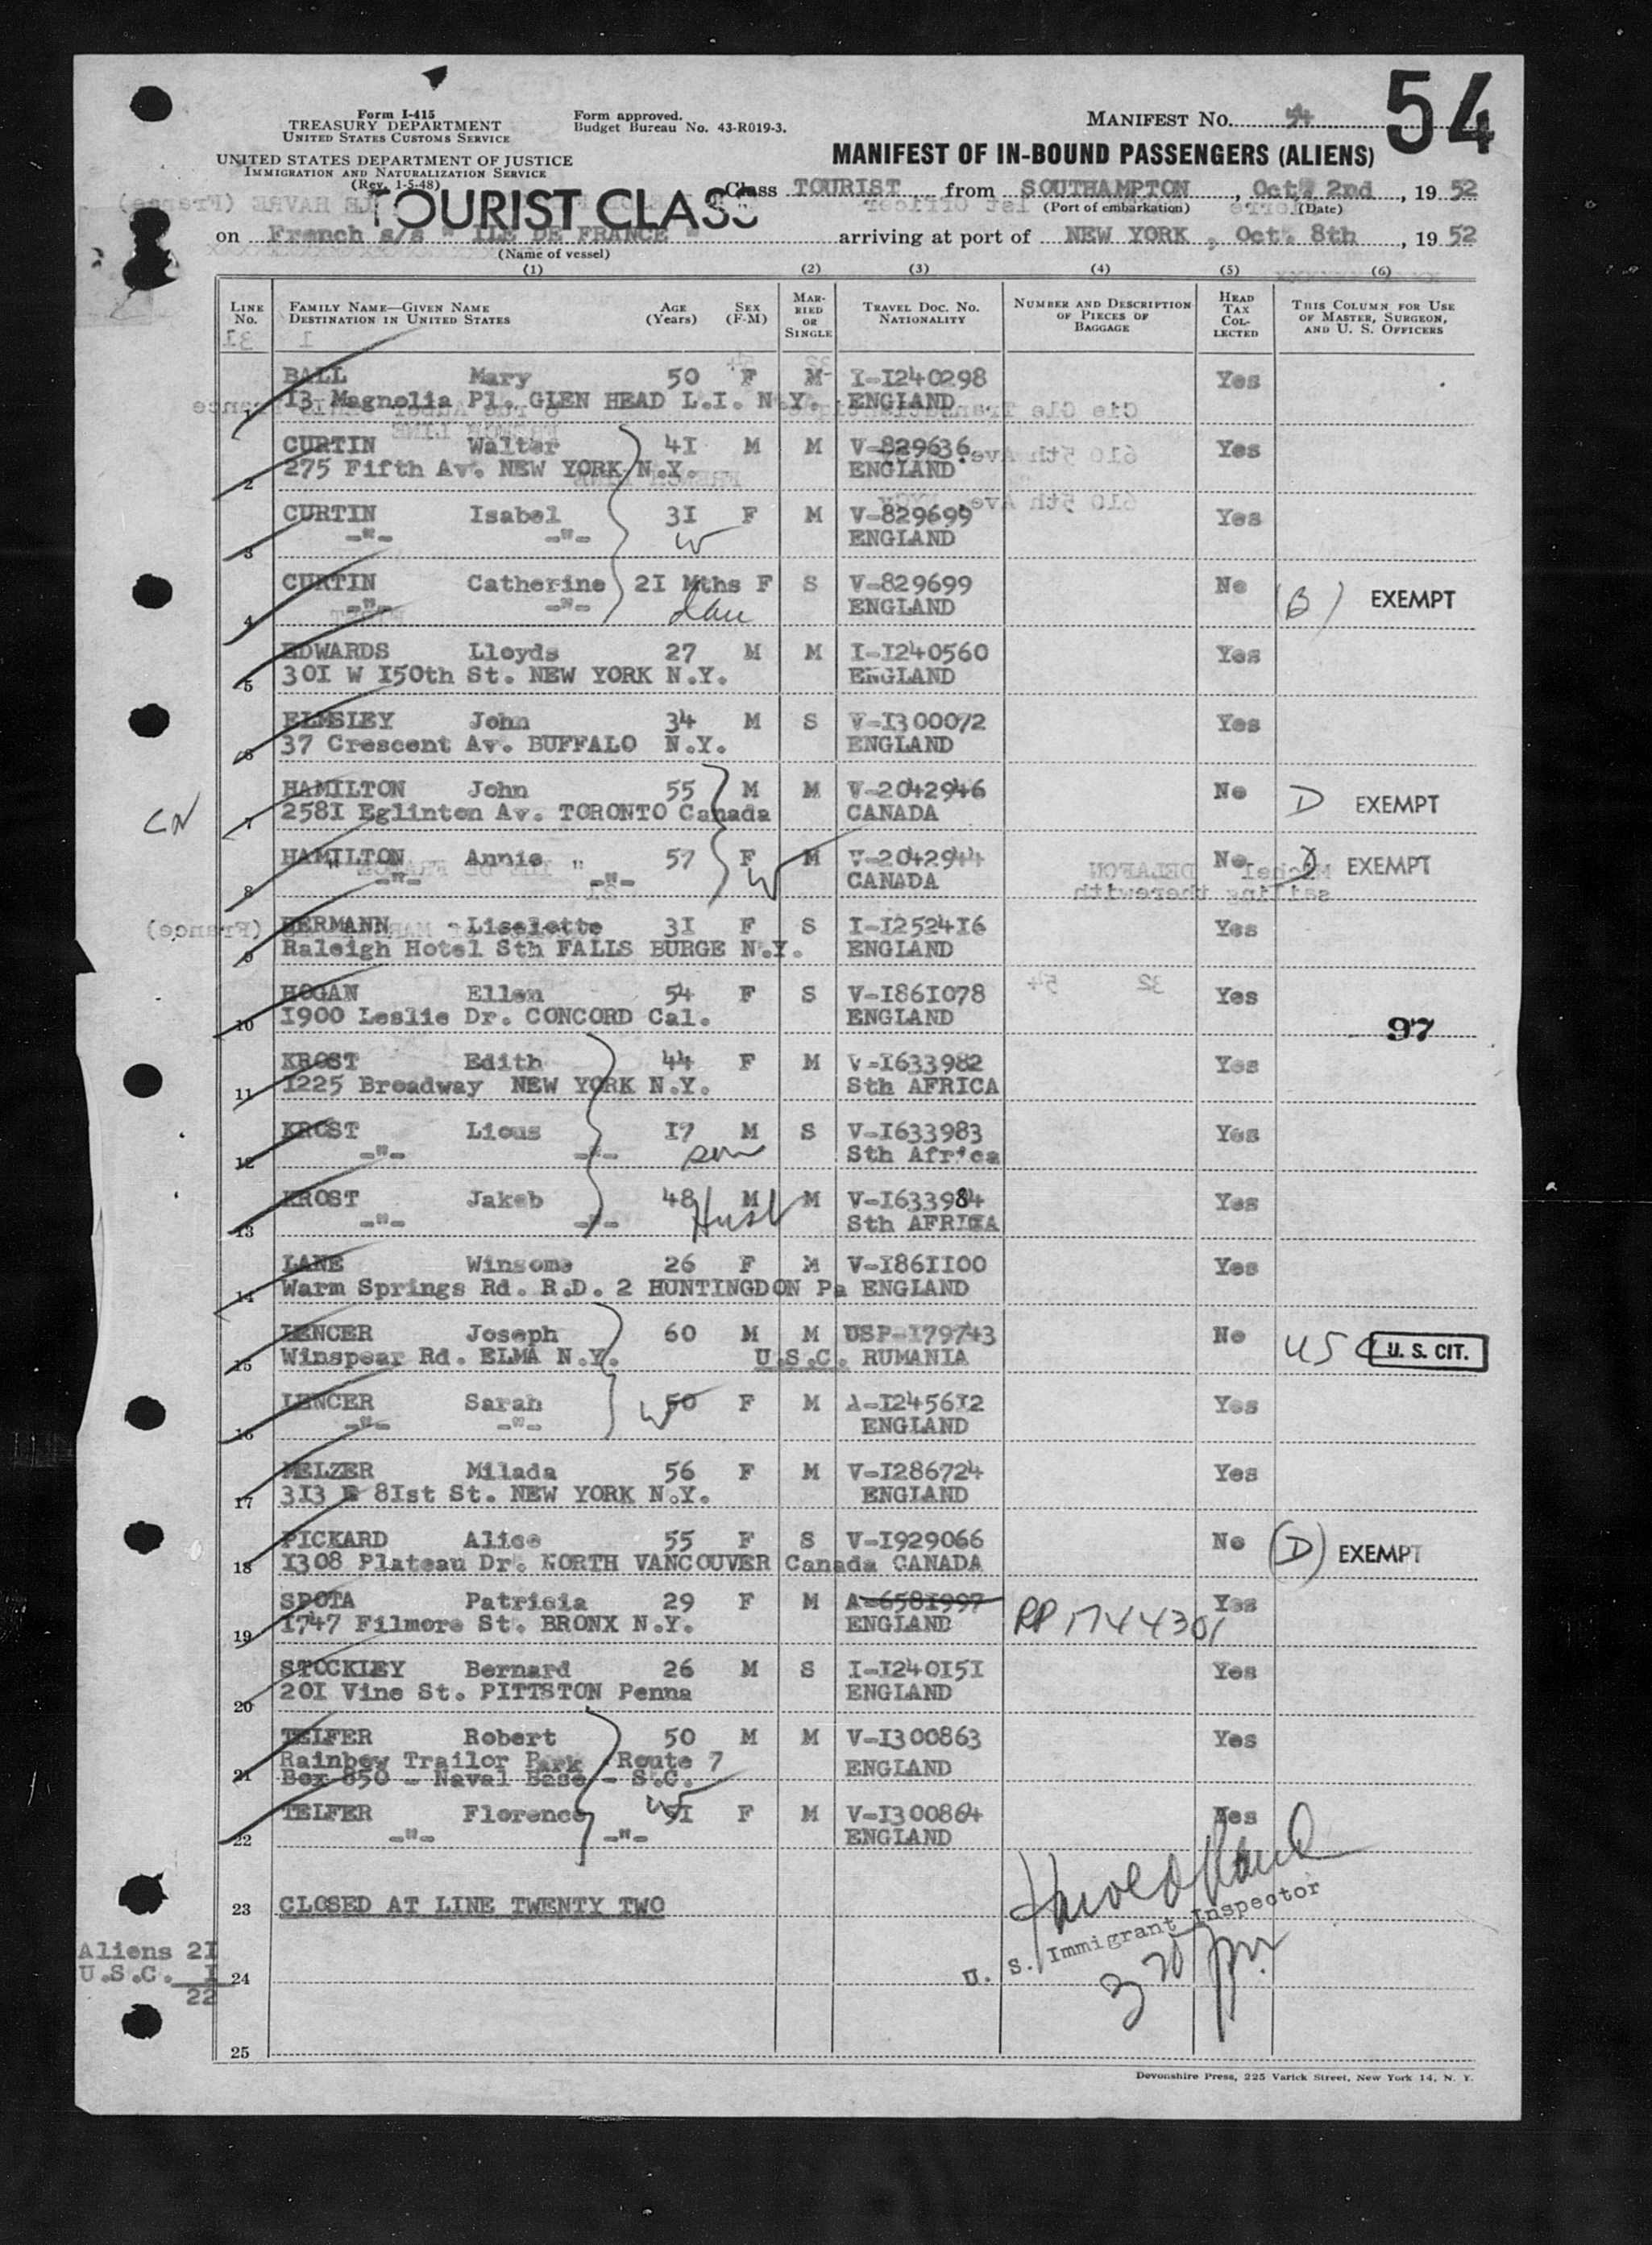 54
Form I-415
TREASURY DEPARTMENT
UNITED STATES CUSTOMS SERVICE
Form approved.
Budget Bureau No. 43-R019-3.
MANIFEST NO. 54
UNITED STATES DEPARTMENT OF JUSTICE
IMMIGRATION AND NATURALIZATION SERVICE
(Rev. 1-5-48)
MANIFEST OF IN-BOUND PASSENGERS (ALIENS)
TOURIST CLASS
Class TOURIST from SOUTHAMPTON, Oct. 2nd, 1952
(Port of embarkation) (Date)
on French s/s " ILE DE FRANCE " arriving at port of NEW YORK, Oct. 8th, 1952
(Name of vessel)
(1) (2) (3) (4) (5) (6)
LINE No. FAMILY NAME—GIVEN NAME DESTINATION IN UNITED STATES AGE (Years) SEX (F-M) MARRIED OR SINGLE TRAVEL DOC. NO. NATIONALITY NUMBER AND DESCRIPTION OF PIECES OF BAGGAGE HEAD TAX COLLECTED THIS COLUMN FOR USE OF MASTER, SURGEON, AND U. S. OFFICERS
BALL Mary 50 F M I-I240298 Yes
1 I3 Magnolia Pl. GLEN HEAD L.I. N.Y. ENGLAND
CURTIN Walter 4I M M V-829636 Yes
2 275 Fifth Av. NEW YORK N.Y. ENGLAND
CURTIN Isabel 3I F M V-829699 Yes
3 -"- -"- W ENGLAND
CURTIN Catherine 2I Mths F S V-829699 No (B) EXEMPT
4 -"- -"- dau ENGLAND
EDWARDS Lloyds 27 M M I-I240560 Yes
5 30I W I50th St. NEW YORK N.Y. ENGLAND
ELMSLEY John 34 M S V-I300072 Yes
6 37 Crescent Av. BUFFALO N.Y. ENGLAND
HAMILTON John 55 M M V-2042946 No D EXEMPT
CN 7 258I Eglinton Av. TORONTO Canada CANADA
HAMILTON Annie 57 F M V-2042944 No D EXEMPT
8 -"- -"- W CANADA
HERMANN Liselotte 3I F S I-I2524I6 Yes
9 Raleigh Hotel Sth FALLS BURGE N.Y. ENGLAND
HOGAN Ellen 54 F S V-I86I078 Yes
10 I900 Leslie Dr. CONCORD Cal. ENGLAND 97
KROST Edith 44 F M V-I633982 Yes
11 I225 Broadway NEW YORK N.Y. Sth AFRICA
KROST Lious I7 M S V-I633983 Yes
12 -"- -"- son Sth Africa
KROST Jakob 48 M M V-I633984 Yes
13 -"- -"- Husb Sth AFRICA
LANE Winsome 26 F M V-I86II00 Yes
14 Warm Springs Rd. R.D. 2 HUNTINGDON Pa ENGLAND
LENCER Joseph 60 M M USP-I79743 No USC U. S. CIT.
15 Winspear Rd. ELMA N.Y. U.S.C. RUMANIA
LENCER Sarah W 50 F M A-I2456I2 Yes
16 -"- -"- ENGLAND
MELZER Milada 56 F M V-I286724 Yes
17 3I3 E 8Ist St. NEW YORK N.Y. ENGLAND
PICKARD Alice 55 F S V-I929066 No (D) EXEMPT
18 I308 Plateau Dr. NORTH VANCOUVER Canada CANADA
SPOTA Patricia 29 F M A-658I997 Yes
19 I747 Filmore St. BRONX N.Y. ENGLAND RP 1744301
STOCKLEY Bernard 26 M S I-I240I5I Yes
20 20I Vine St. PITTSTON Penna ENGLAND
TELFER Robert 50 M M V-I300863 Yes
Rainbow Trailor Park Route 7 ENGLAND
21 Box 850 - Naval Base - S.C.
TELFER Florence W 5I F M V-I300864 Yes
22 -"- -"- ENGLAND
23 CLOSED AT LINE TWENTY TWO
U. S. Immigrant Inspector
Aliens 2I
U.S.C. I 24
22
3 20 pm
25
Devonshire Press, 225 Varick Street, New York 14, N. Y.